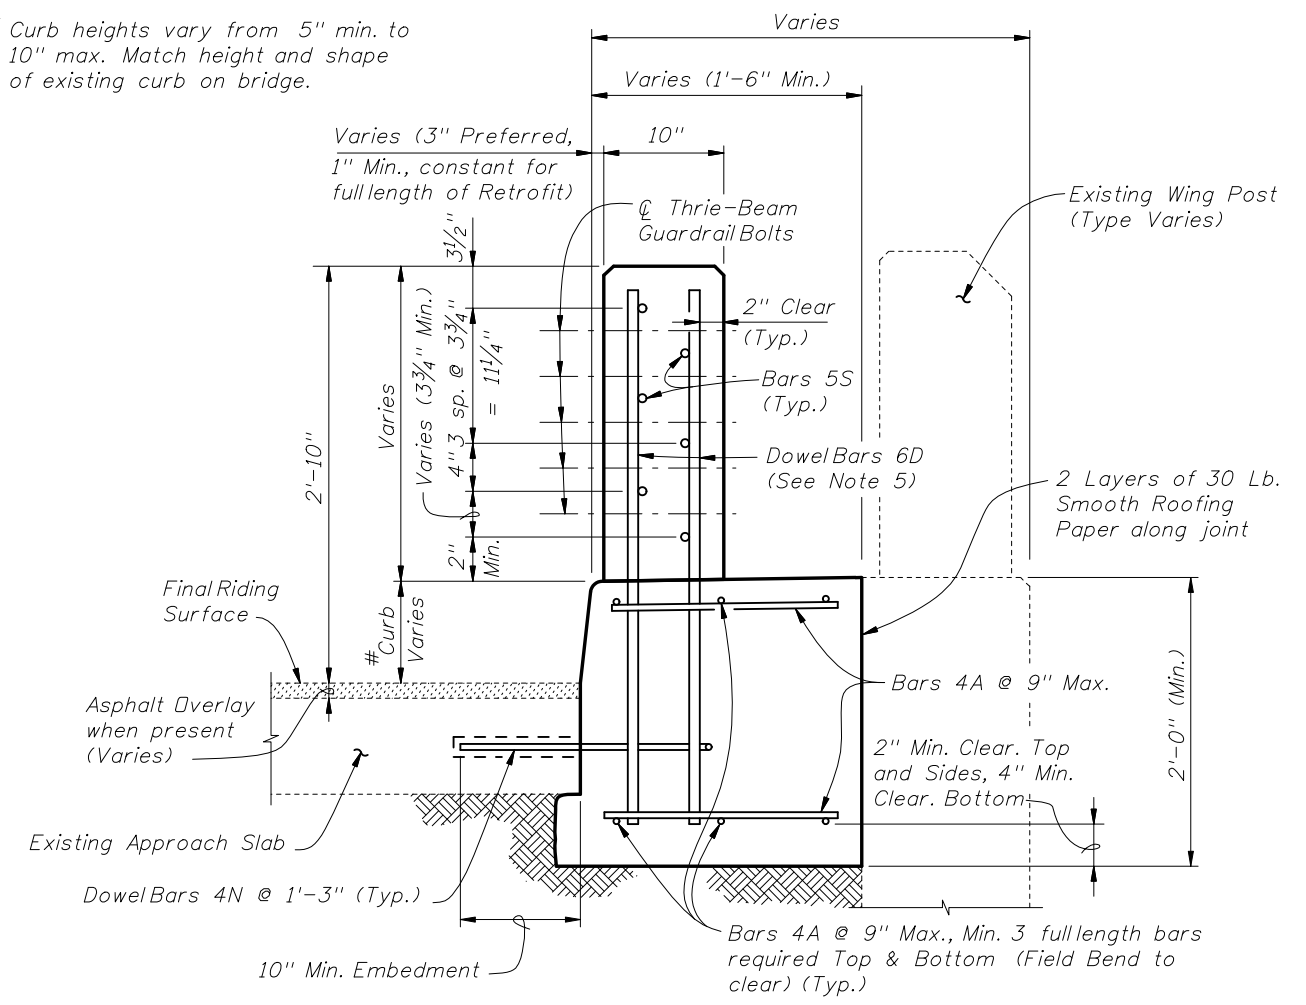 Curb heights vary from 5" min. to
10" max. Match height and shape
of existing curb on bridge.
Varies
Varies (1'-6" Min.)
Varies (3" Preferred,
1" Min., constant for
full length of Retrofit)
10"
℄ Thrie-Beam
Guardrail Bolts
Existing Wing Post
(Type Varies)
3½"
2" Clear
(Typ.)
Varies (3¾" Min.)
3 sp. @ 3¾"
= 11¼"
Bars 5S
(Typ.)
Varies
2'-10"
4"
Dowel Bars 6D
(See Note 5)
2 Layers of 30 Lb.
Smooth Roofing
Paper along joint
2"
Min.
Final Riding
Surface
#Curb
Varies
Bars 4A @ 9" Max.
2'-0" (Min.)
Asphalt Overlay
when present
(Varies)
2" Min. Clear. Top
and Sides, 4" Min.
Clear. Bottom
Existing Approach Slab
Dowel Bars 4N @ 1'-3" (Typ.)
10" Min. Embedment
Bars 4A @ 9" Max., Min. 3 full length bars
required Top & Bottom (Field Bend to
clear) (Typ.)